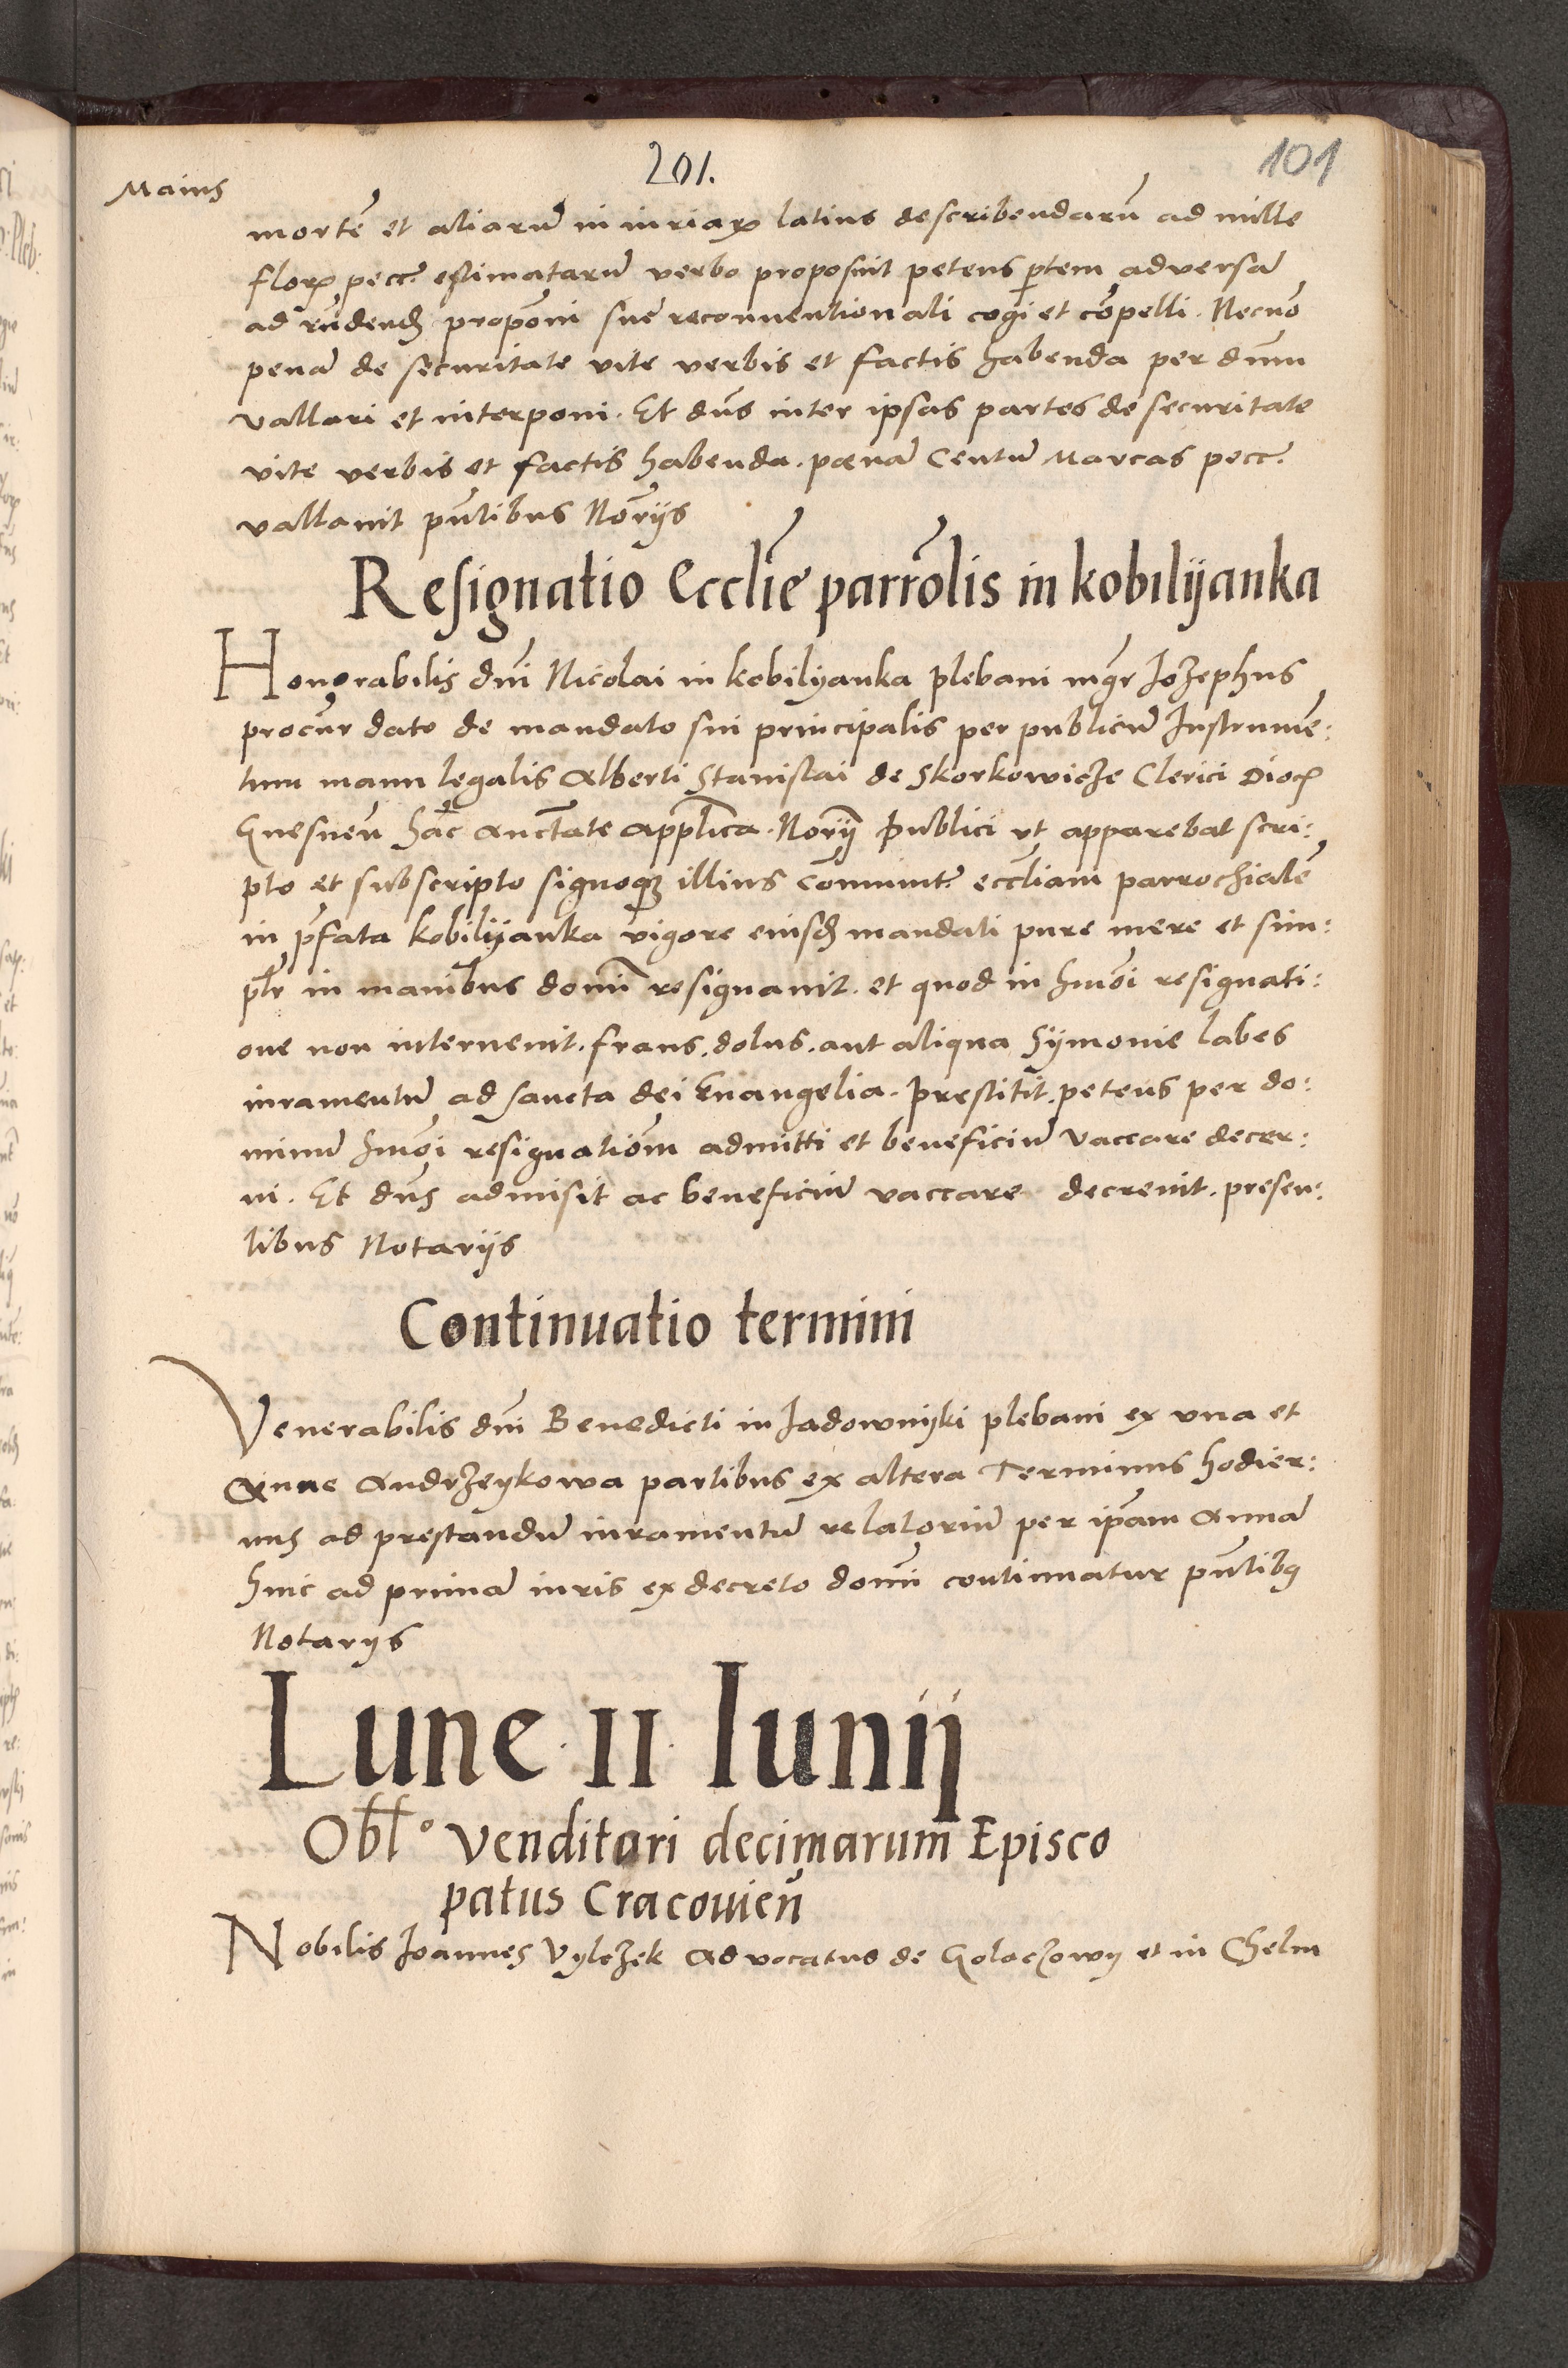 201.
101
Maius
mortē et aliarū iniuriaꝝ latius describendarū ad mille
floꝝ pecc estimatarū verbo proposuit petens ptem adversā
ad rn̄dend propōni sue reconuentionali cogi et cōpelli. Necnō
penā de securitate vite verbis et factis habenda per dnm̄
vallari et interponi. Et dns̄ inter ipsas partes de securitate
vite verbis et factis habenda. pœnā Centū Marcas pecc
vallauit pn̄tibus Norijs
Resignatio Eccliē parrōlis in kobilijanka
Honorabilis dn̄i Nicolai in kobilijanka plebani mgr̄ Jozephus
procur̄ dato de mandato sui principalis per publicū Instrumē:
tum manu legalis Alberti Stanislai de Skorkowicze Clerici Dioc
Gnesnen̄ hac auctate applica. Norij publici vt apparebat scri:
pto et subscripto signoqꝫ illius communit eccliam parrochialē
in p̄fata kobilijanka vigore eiusd mandati pure mere et sim:
plr̄ in manibus domi resignauit. et quod in hmōi resignati:
one non interuenit. fraus. dolus. aut aliqua Sijmonie labes
iuramentū ad sancta dei Euangelia. prestitit. petens per do:
minū hmōi resignatiōm admitti et beneficiū vaccare decer:
ni. Et dns̄ admisit ac beneficiū vaccare decreuit. presen:
tibus Notarijs
Continuatio termini
Venerabilis dn̄i Benedicti in Jadownijki plebani ex vna et
Annae Andrzeijkowa partibus ex altera Terminus hodier:
nus ad prestandū iuramentū relatoriū per ip̄am Annā
hinc ad primā iuris ex decreto domi continuatur pn̄tibꝰ
Notarijs
Lune .11. Iunij
Obl̄º venditari decimarum Episco
patus Cracouien̄
Nobilis Joannes Vylczek Advocatus de Goloczowij et in Chelm